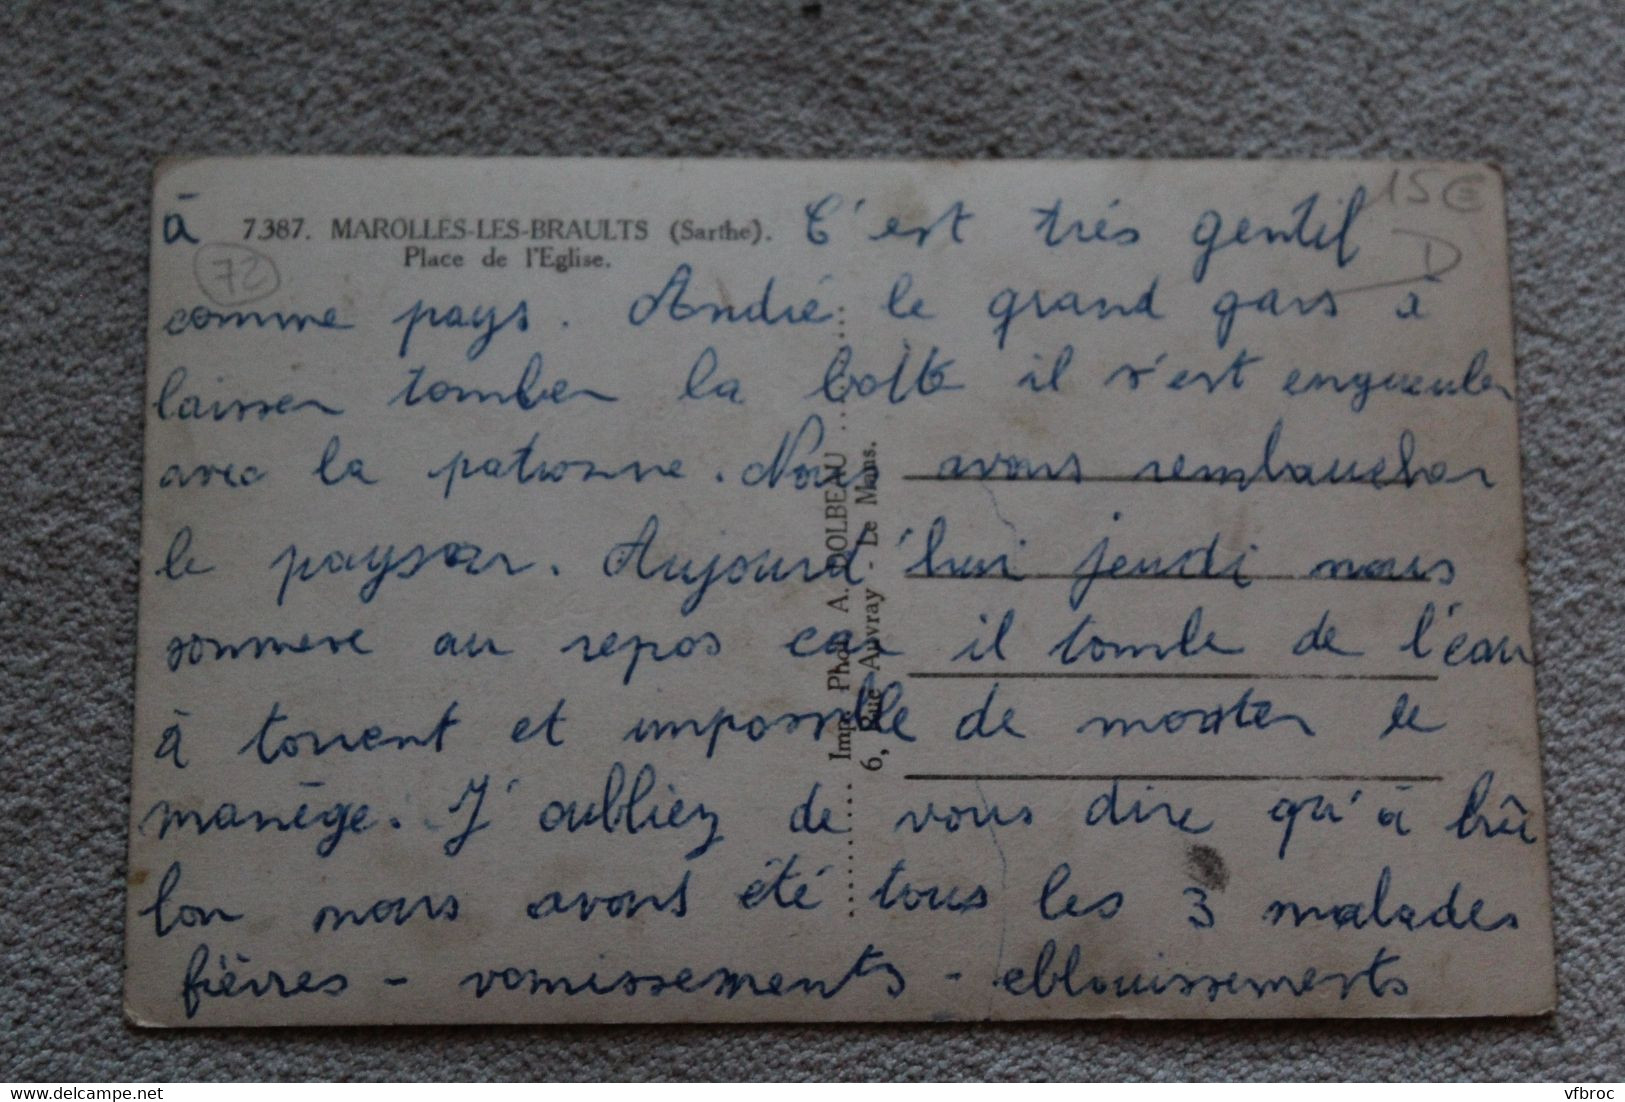 à 7387. MAROLLES-LES-BRAULTS (Sarthe). C'est trés gentil
Place de l'Eglise.
72
15€
D
comme pays. André le grand gars à
laisser tomber la boite il s'est engueuler
avec la patronne. Nous avons rembaucher
le paysan. Aujourd'hui jeudi nous
sommere au repos car il tombe de l'eau
à torrent et impossible de monter le
manège. J'oubliez de vous dire qu'à bru
lon nous avons été tous les 3 malades
fièvres - vomissements - eblouissements
Imp. Phot. A. DOLBEAU
6, Rue Auvray - Le Mans.
delcampe.net
vfbroc